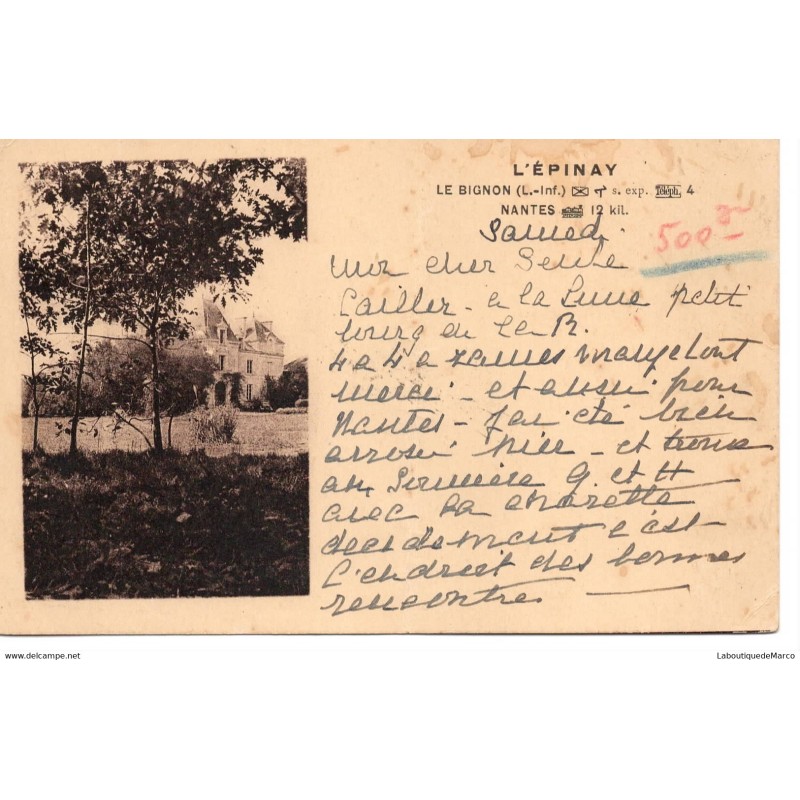 L'ÉPINAY
LE BIGNON (L.-Inf.) s. exp. Téléph. 4
NANTES 12 kil.
Samedi
500
mon cher
Cailler - a la Lune petit
bourg de
4 a 4 a
merci - et aussi pour
Nantes - J'ai été bien
arrosé hier - et
au G. et H
avec la charette
decidement c'est
l'endroit des bonnes
rencontres
www.delcampe.net
LaboutiquedeMarco